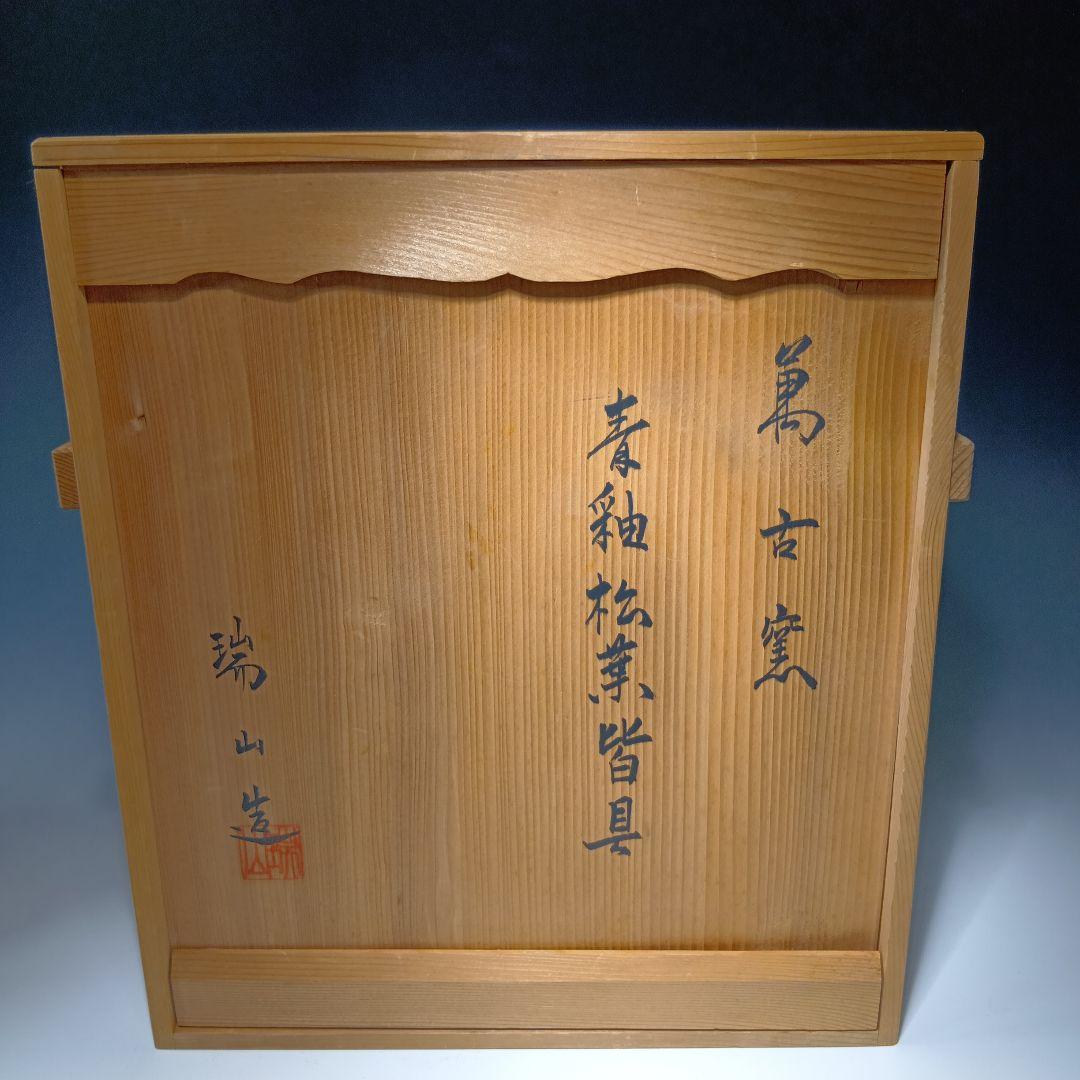 萬古窯
青釉松葉皆具
瑞山造
瑞山